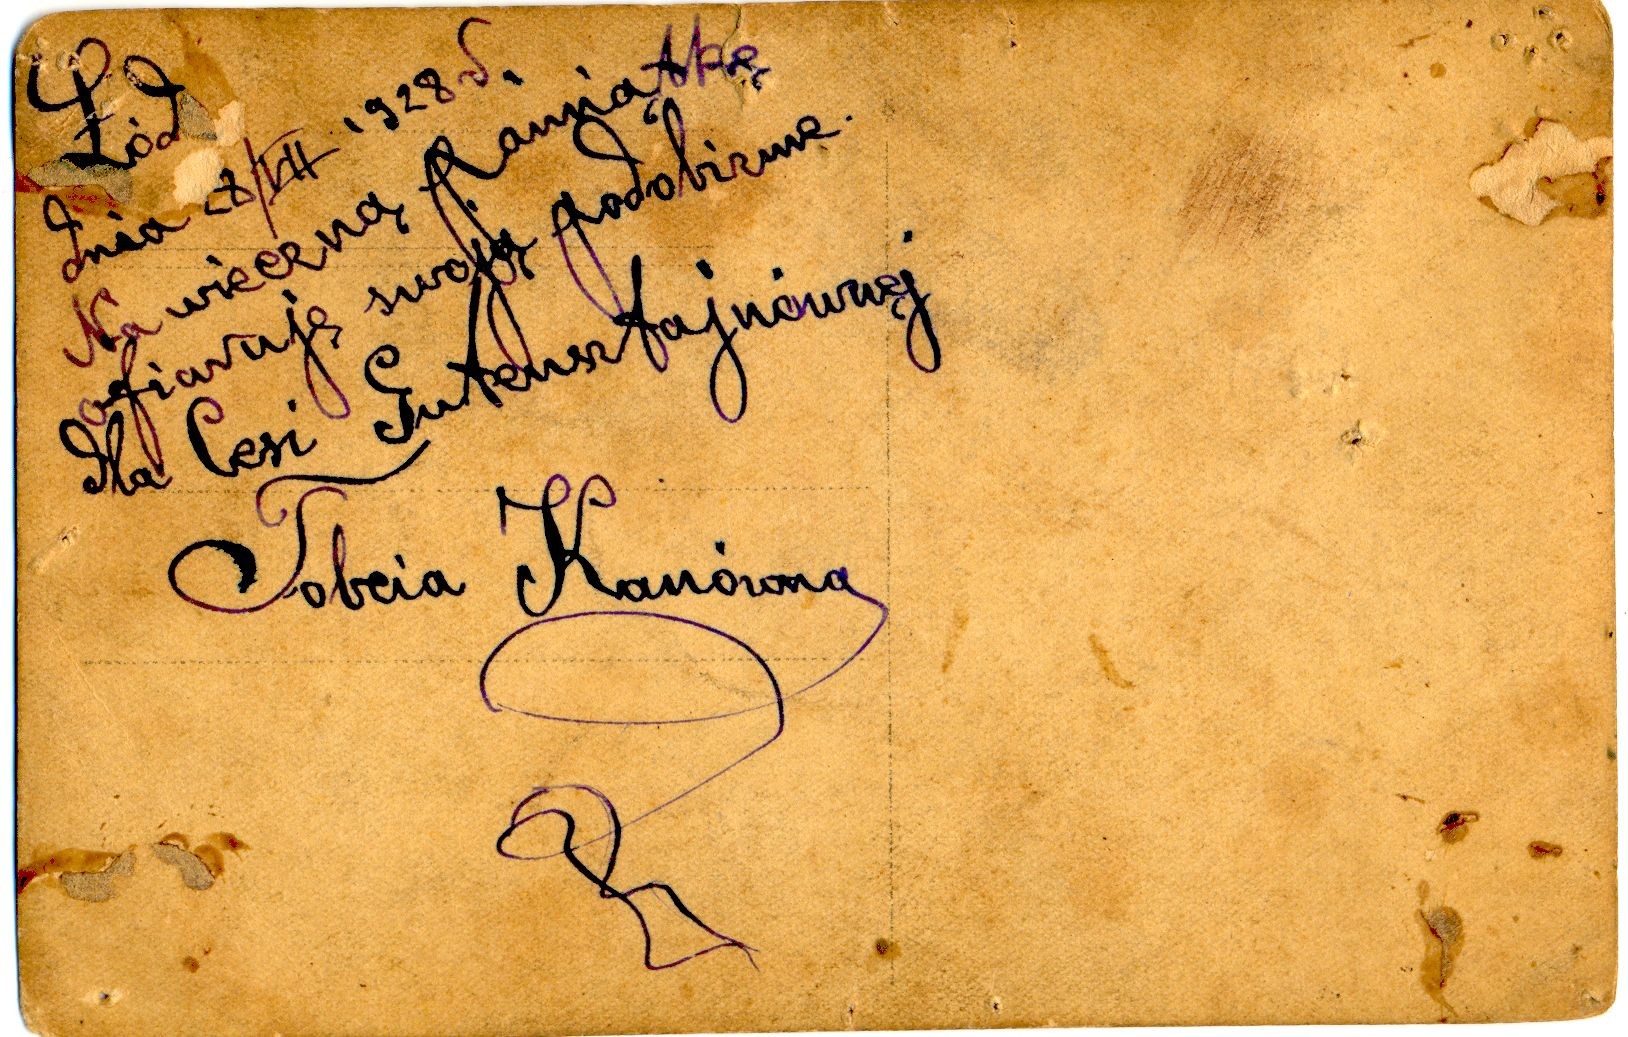 Łód
Dnia 28/VII 1928 r.
Na wieczną Pamiątkę
ofiaruję swoją podobizne.
Dla Cesi Gutensztajnównęj
Tobcia Kanówna